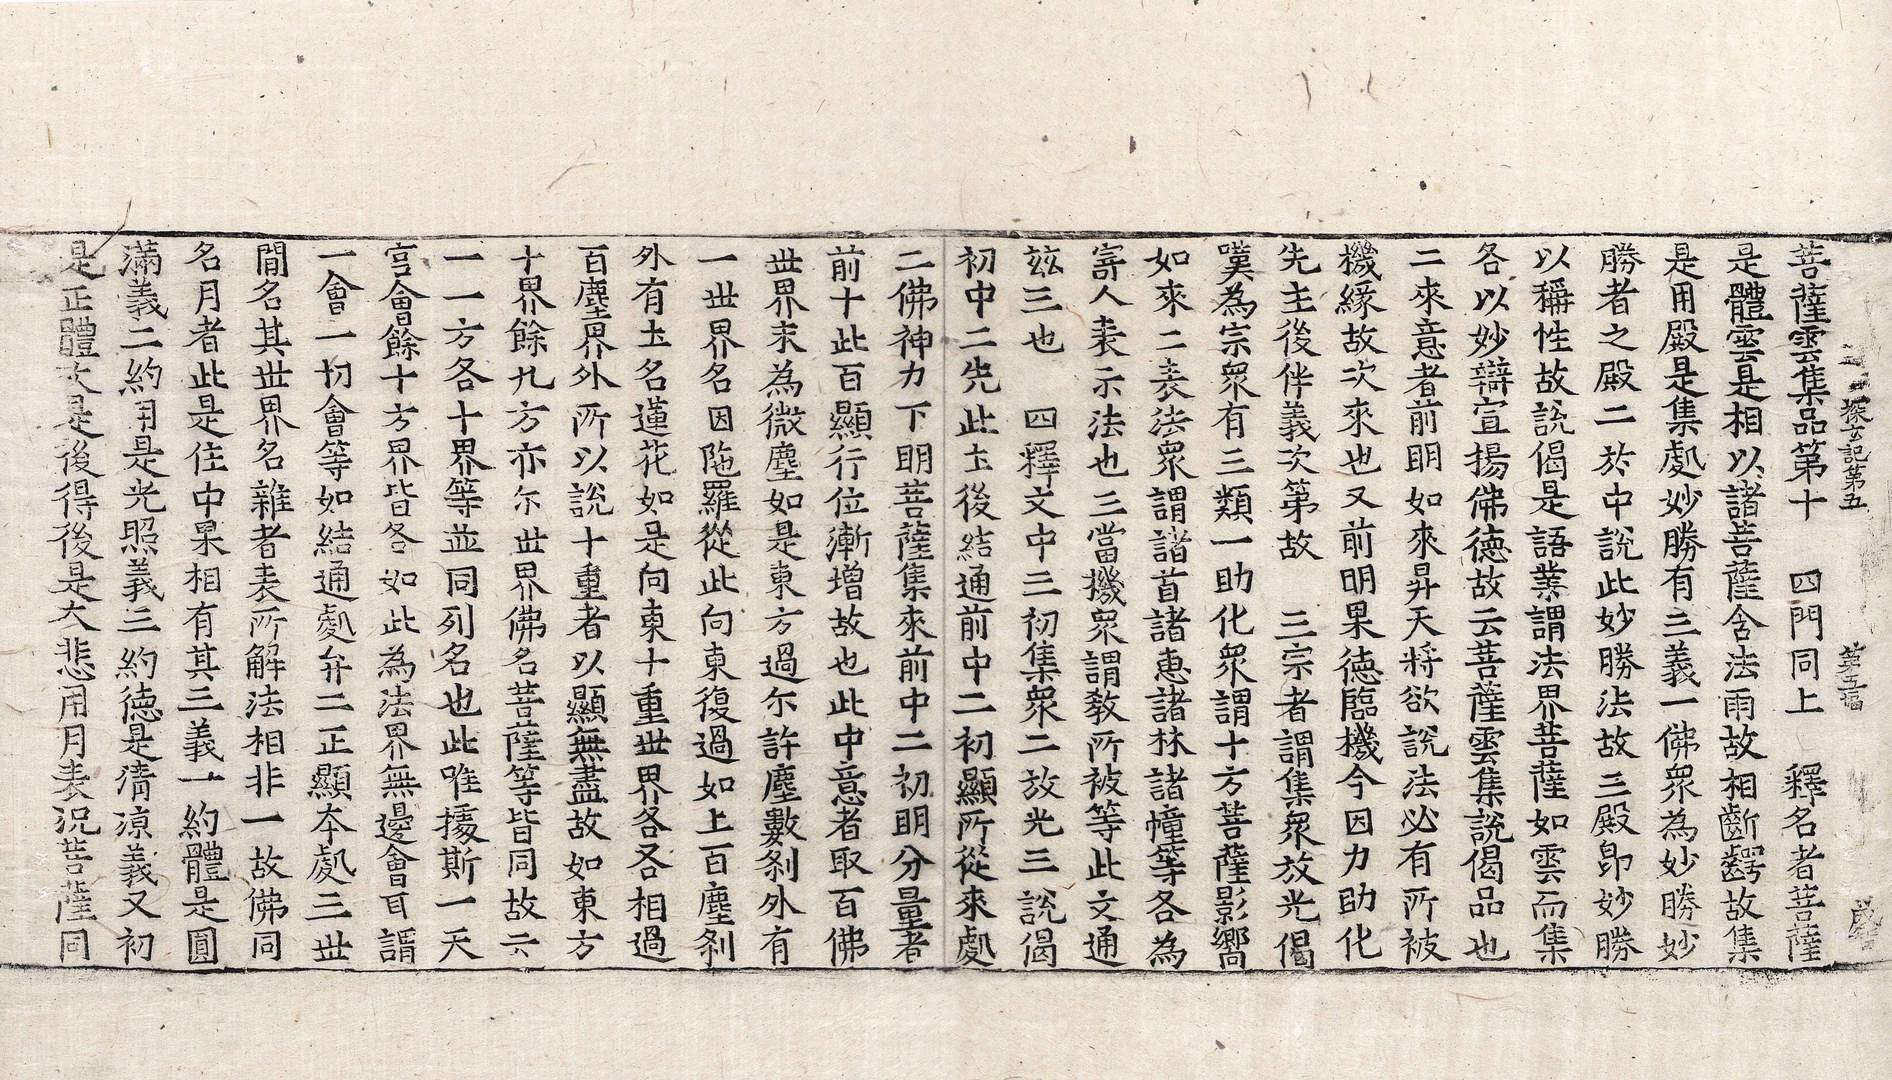 探玄記第五　第五幅
菩薩雲集品第十　四門同上　釋名者菩薩
是體雲是相以諸菩薩含法雨故相齗齶故集
是用殿是集處妙勝有三義一佛衆為妙勝妙
勝者之殿二於中說此妙勝法故三殿即妙勝
以稱性故說偈是語業謂法界菩薩如雲而集
各以妙辯宣揚佛德故云菩薩雲集說偈品也
二來意者前明如來昇天將欲說法必有所被
機緣故次來也又前明果德臨機今因力助化
先主後伴義次第故　三宗者謂集衆放光偈
嘆為宗衆有三類一助化衆謂十方菩薩影嚮
如來二表法衆謂諸首諸惠諸林諸幢等各為
寄人表示法也三當機衆謂教所被等此文通
茲三也　四釋文中三初集衆二放光三說偈
初中二先此土後結通前中二初顯所從來處
二佛神力下明菩薩集來前中二初明分量者
前十此百顯行位漸增故也此中意者取百佛
世界末為微塵如是東方過尔許塵數剎外有
一世界名因陁羅從此向東復過如上百塵剎
外有土名蓮花如是向東十重世界各各相過
百塵界外所以說十重者以顯無盡故如東方
十界餘九方亦尔世界佛名菩薩等皆同故云
一一方各十界等並同列名也此唯據斯一天
宮會餘十方界皆各如此為法界無邊會耳謂
一會一切會等如結通處弁二正顯本處三世
間名其世界名雜者表所解法相非一故佛同
名月者此是住中果相有其三義一約體是圓
滿義二約用是光照義三約德是清涼義又初
是正體故是後得後是大悲用月表況菩薩同